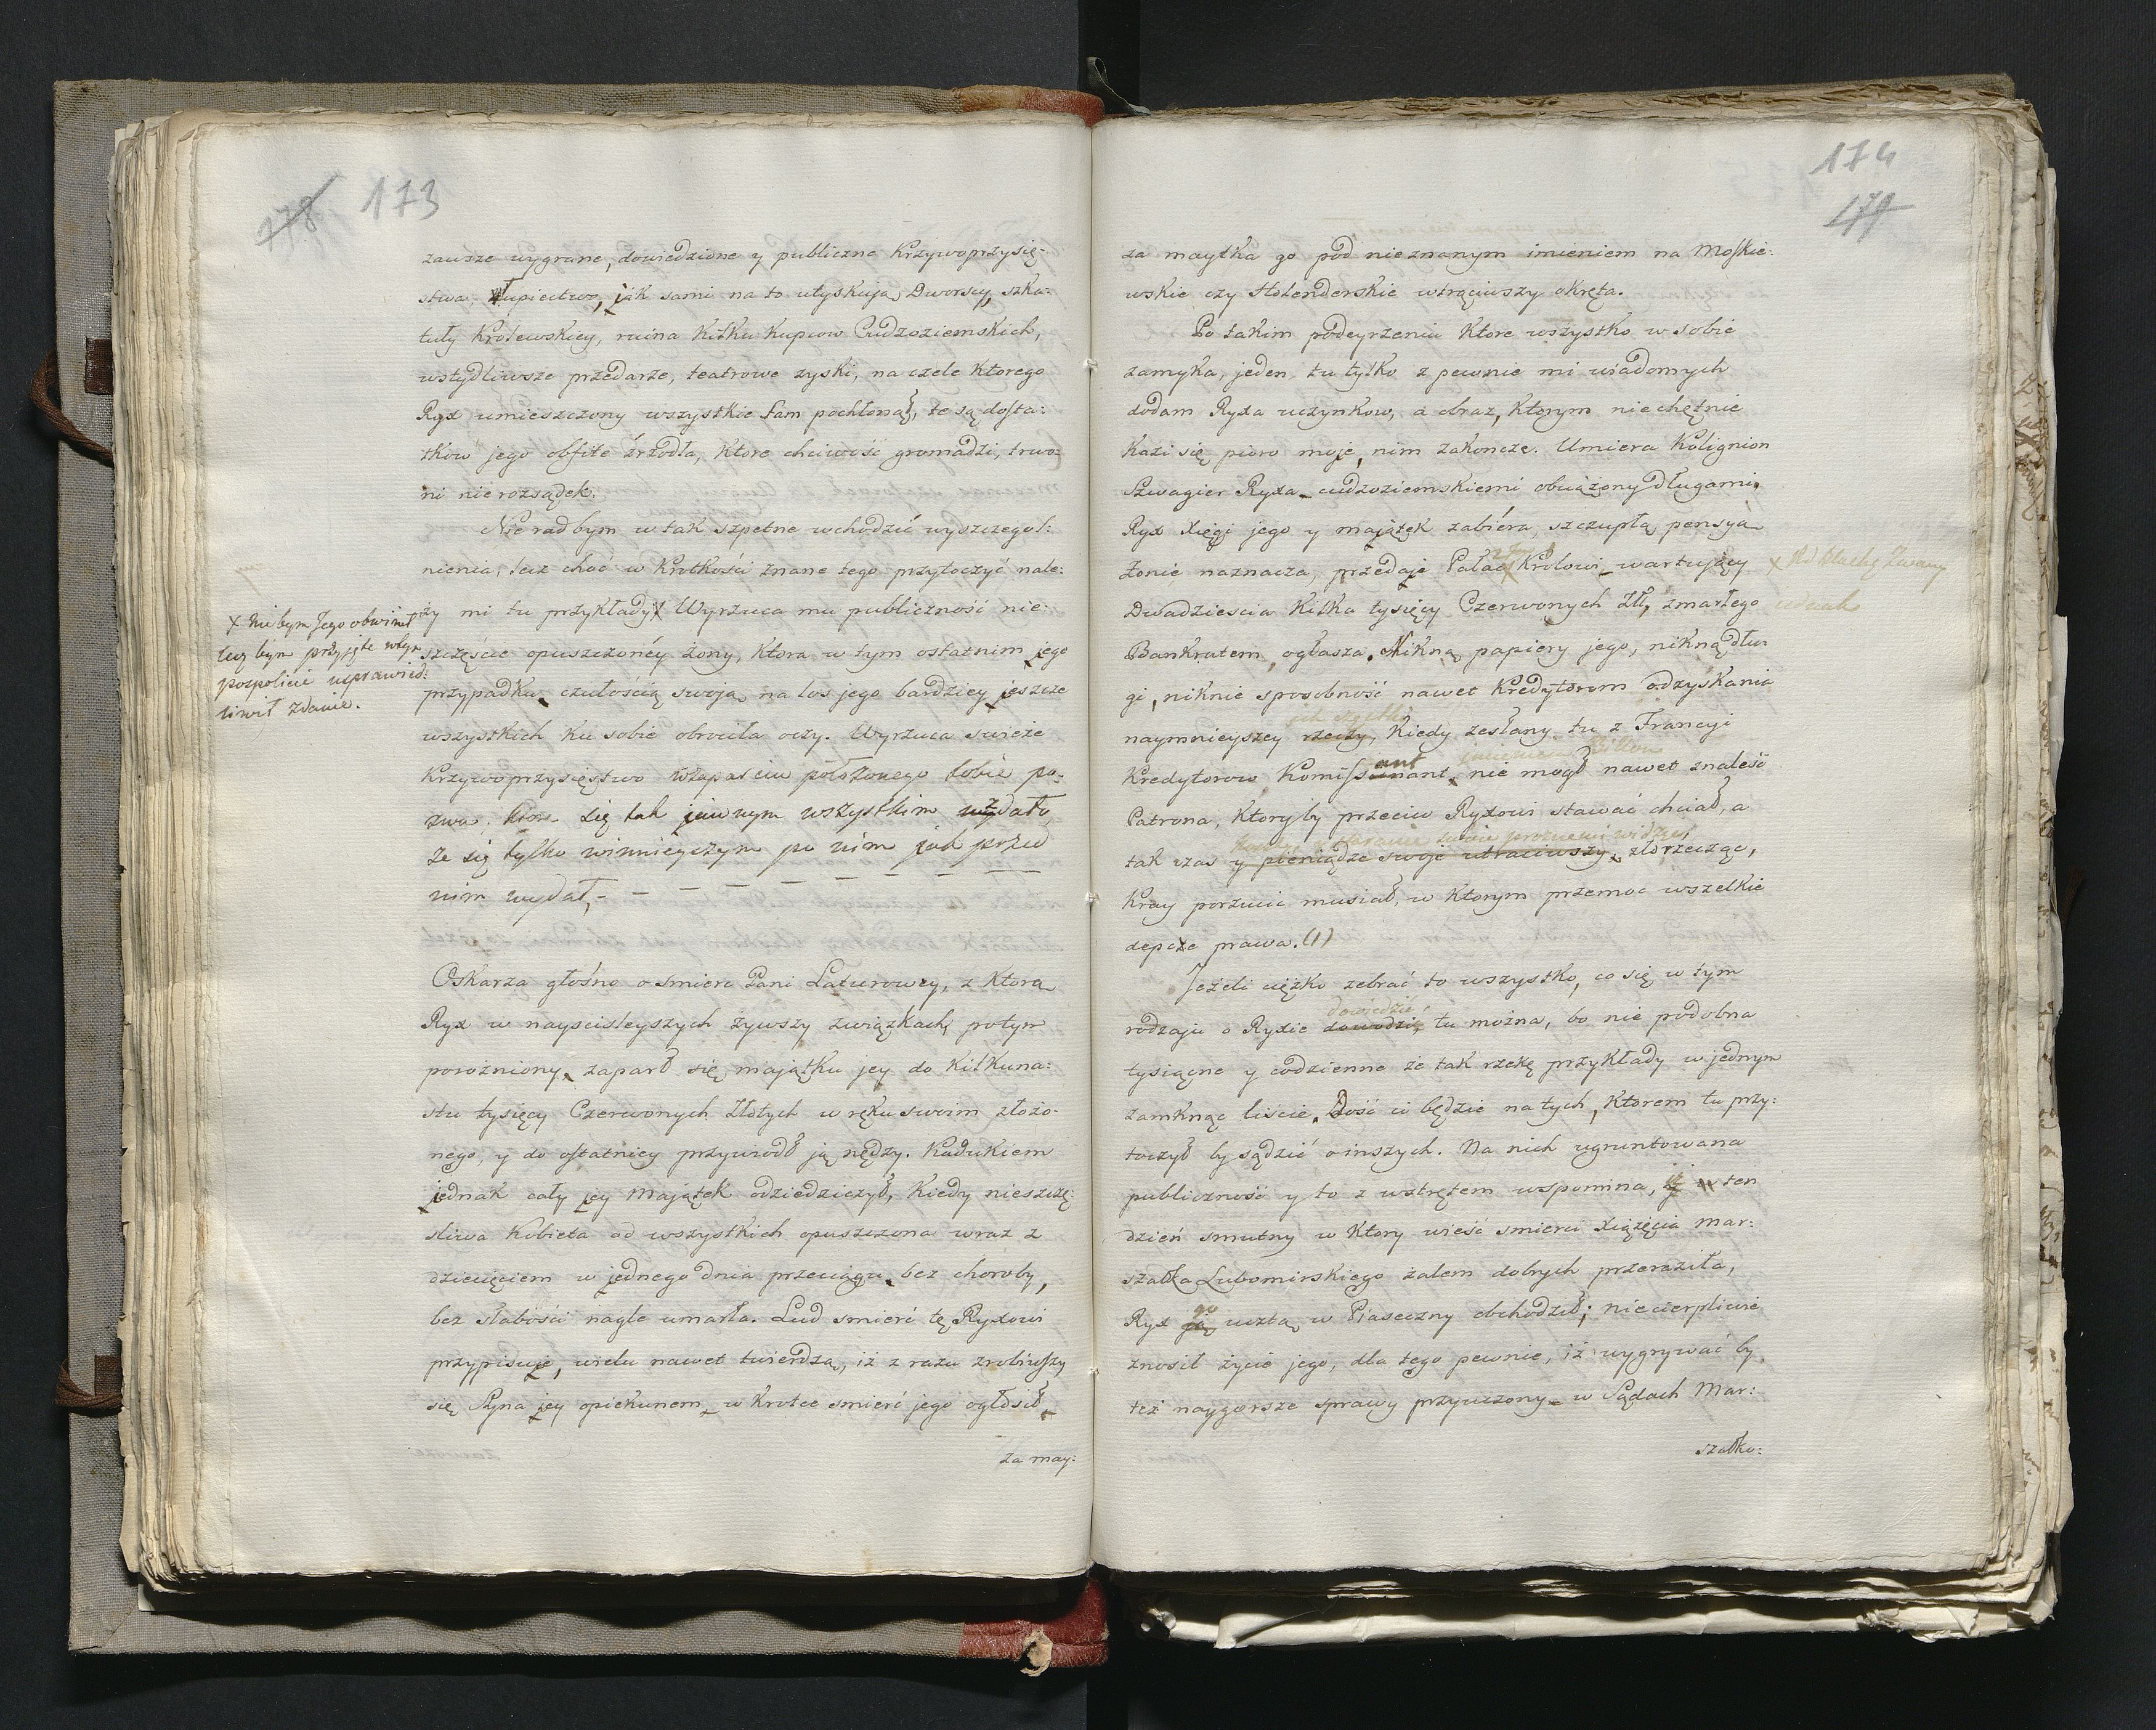 178 173
zawsze wygrane, dowiedzione y publiczne Krzywoprzysię:
stwa, łupiectwo, jak sami na to utyskują Dworscy, szka:
tuły Krolewskiey, ruina Kilku Kupcow Cudzoziemskich,
wstydliwsze przedarze, teatrowe zyski, na czele ktorego
Ryx umieszczony wszystkie sam pochłonął, te są dosta:
tkow jego obfite źrzodła, Ktore chciwość gromadzi, trwo:
ni nierozsądek.
Nie rad bym w tak szpetne wchodzić wyszczegol:
nienia, lecz choć w Krotkości znane tego przytoczyć nale:
ży mi tu przykłady x Wyrzuca mu publiczność nie:
x Nie bym Jego obwinił
lecz bym przyjęte w tym
pospolicie usprawied:
liwił zdanie.
szczęście opuszczonéy żony, Ktora w tym ostatnim jego
przypadku czułością swoją na los jego bardziey jeszcze
wszystkich ku sobie obrociła oczy. Wyrzuca swieże
Krzywoprzysięstwo w zaparciu położonego sobie po-
zwu, Ktore się tak jawnym wszystkim zdało,
ze się tylko winnieyszym po nim jak przed
nim wydał,- — — — — — — — — —
Oskarza głośno o smierc Pani Laturowey, z Ktorą
Ryx w nayscisleyszych żywszy związkach, potym
porożniony zaparł się majątku jey do Kilkuna:
stu tysięcy Czerwonych Złotych w ręku swoim złożo-
nego, y do ostatniey przywiodł ją nędzy. Kadukiem
jednak cały jey majątek odziedziczył, Kiedy nieszczę:
sliwa Kobieta od wszystkich opuszczona wraz z
dziecięciem w jednego dnia przeciągu bez choroby,
bez słabości nagle umarła. Lud smierć tę Ryxowi
przypisuje, wielu nawet twierdzą, iż z razu zrobiwszy
się Syna jey opiekunem w Krotce smierć jego ogłosił
za may:
174
179
za maytka go pod nieznanym imieniem na Moskie:
wskie czy Holenderskie wtrąciwszy okręta.
Po takim podeyrzeniu Ktore wszystko w sobie
zamyka, jeden tu tylko z pewnie mi wiadomych
dodam Ryxa uczynkow, a obraz, Ktorym niechętnie
Kazi się pioro moje, nim zakonczę. Umiera Kolignion
Szwagier Ryxa cudzoziemskiemi obciążony długami.
Ryx Xięgi jego y majątek zabiéra, szczupłą pensyą
Żonie naznacza, przedaje Pałac x Krolowi wartujący
x Pod blachą zwany
Dwadziescia Kilka tysięcy Czerwonych Zł, zmarłego
jednak
Bankrutem ogłasza. Nikną papiery jego, nikną dłu
gi, niknie sposobność nawet Kredytorom odzyskania
naymnieyszey rzeczy, Kiedy zesłany tu z Francyi
Kredytorow Komissant nie mogł nawet znaleść
Patrona, Ktoryby przeciw Ryxowi stawać chciał, a
tak czas y pieniądze swoje utraciwszy, złorzecząc,
Kray porzucić musiał, w Ktorym przemoc wszelkie
depcze prawa. (1)
Jeżeli ciężko zebrać to wszystko, co się w tym
dowiedzić
rodzaju o Ryxie dowodzić tu można, bo nie podobna
tysiączne y codzienne że tak rzekę przykłady w jednym
zamknąc liscie. Dość ci będzie na tych, Ktorem tu przy:
toczył by sądzić o inszych. Na nich ugruntowana
publiczność y to z wstrętem wspomina, iż ten
dzień smutny w Ktory wieść smierci Xiążęcia Mar:
szałka Lubomirskiego żalem dobrych przeraziła,
go
Ryx ją ucztą w Piaseczny obchodził; niecierpliwie
znosił życie jego, dla tego pewnie, iż wygrywać by
też naygorsze sprawy przyuczony w Sądach Mar:
szałko: